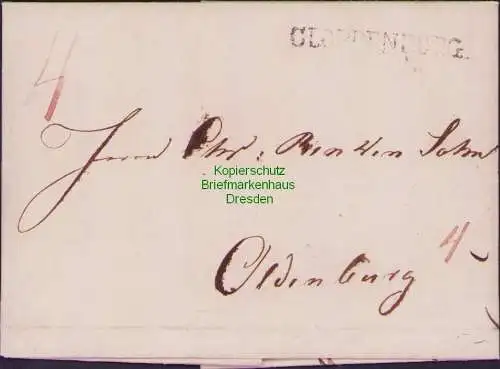 CLOPPENBURG.
4
Herrn Chr: Sohn
Kopierschutz
Briefmarkenhaus
Dresden
Oldenburg 4